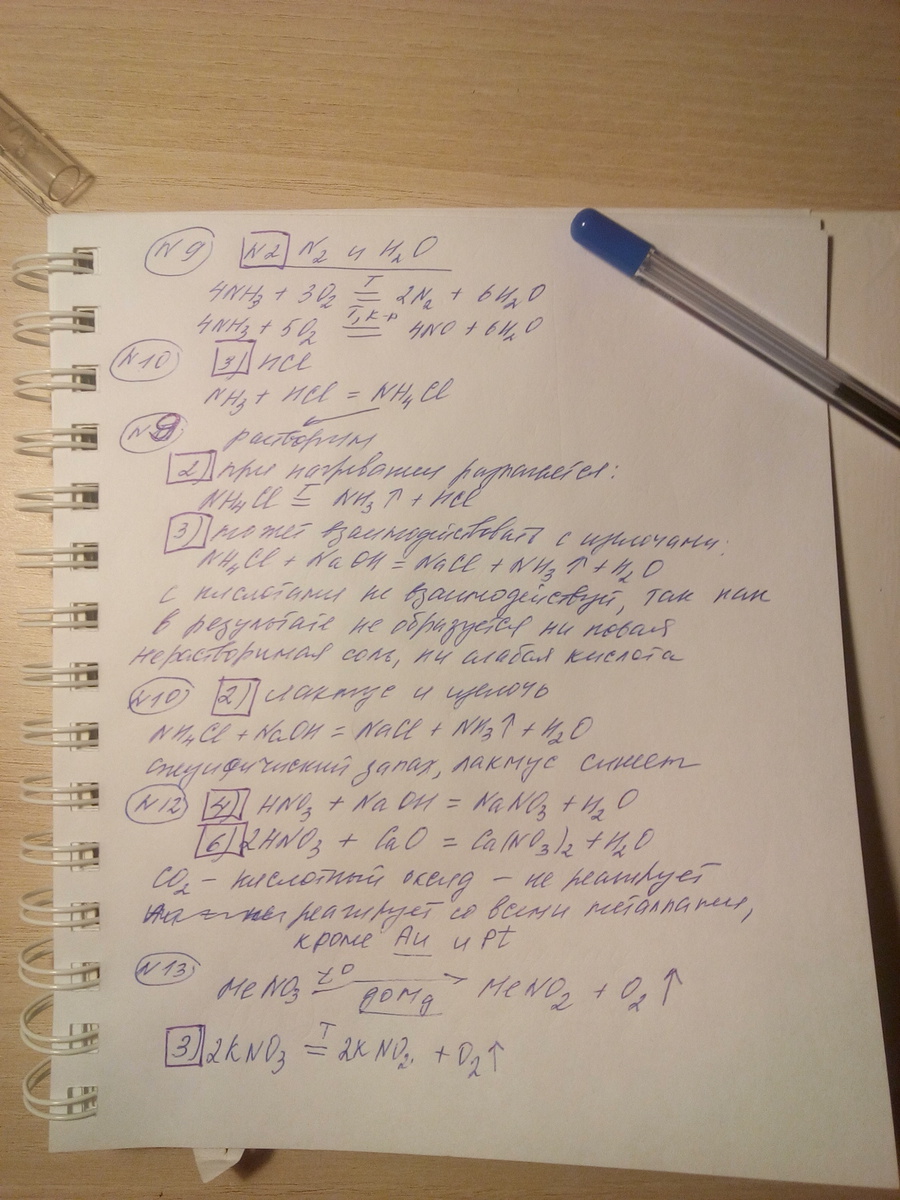 N9 N2 N₂ и H₂O
4NH₃ + 3O₂ =ᵀ 2N₂ + 6H₂O
4NH₃ + 5O₂ =ᵀ'ᵏ⁻ᵖ 4NO + 6H₂O
N10 3) HCl
NH₃ + HCl = NH₄Cl
N9 растворим
2) при нагревании разлагается:
NH₄Cl =ᵀ NH₃↑ + HCl
3) может взаимодействовать с щелочами:
NH₄Cl + NaOH = NaCl + NH₃↑ + H₂O
с кислотами не взаимодействуй, так как
в результате не образуется ни новая
нерастворимая соль, ни слабая кислота
N10 2) лакмус и щелочь
NH₄Cl + NaOH = NaCl + NH₃↑ + H₂O
специфический запах, лакмус синеет
N12 4) HNO₃ + NaOH = NaNO₃ + H₂O
6) 2HNO₃ + CaO = Ca(NO₃)₂ + H₂O
CO₂ – кислотный оксид – не реагирует
реагирует со всеми металлами,
кроме Au и Pt
N13 MeNO₃ t° до Mg → MeNO₂ + O₂↑
3) 2KNO₃ =ᵀ 2KNO₂ + O₂↑